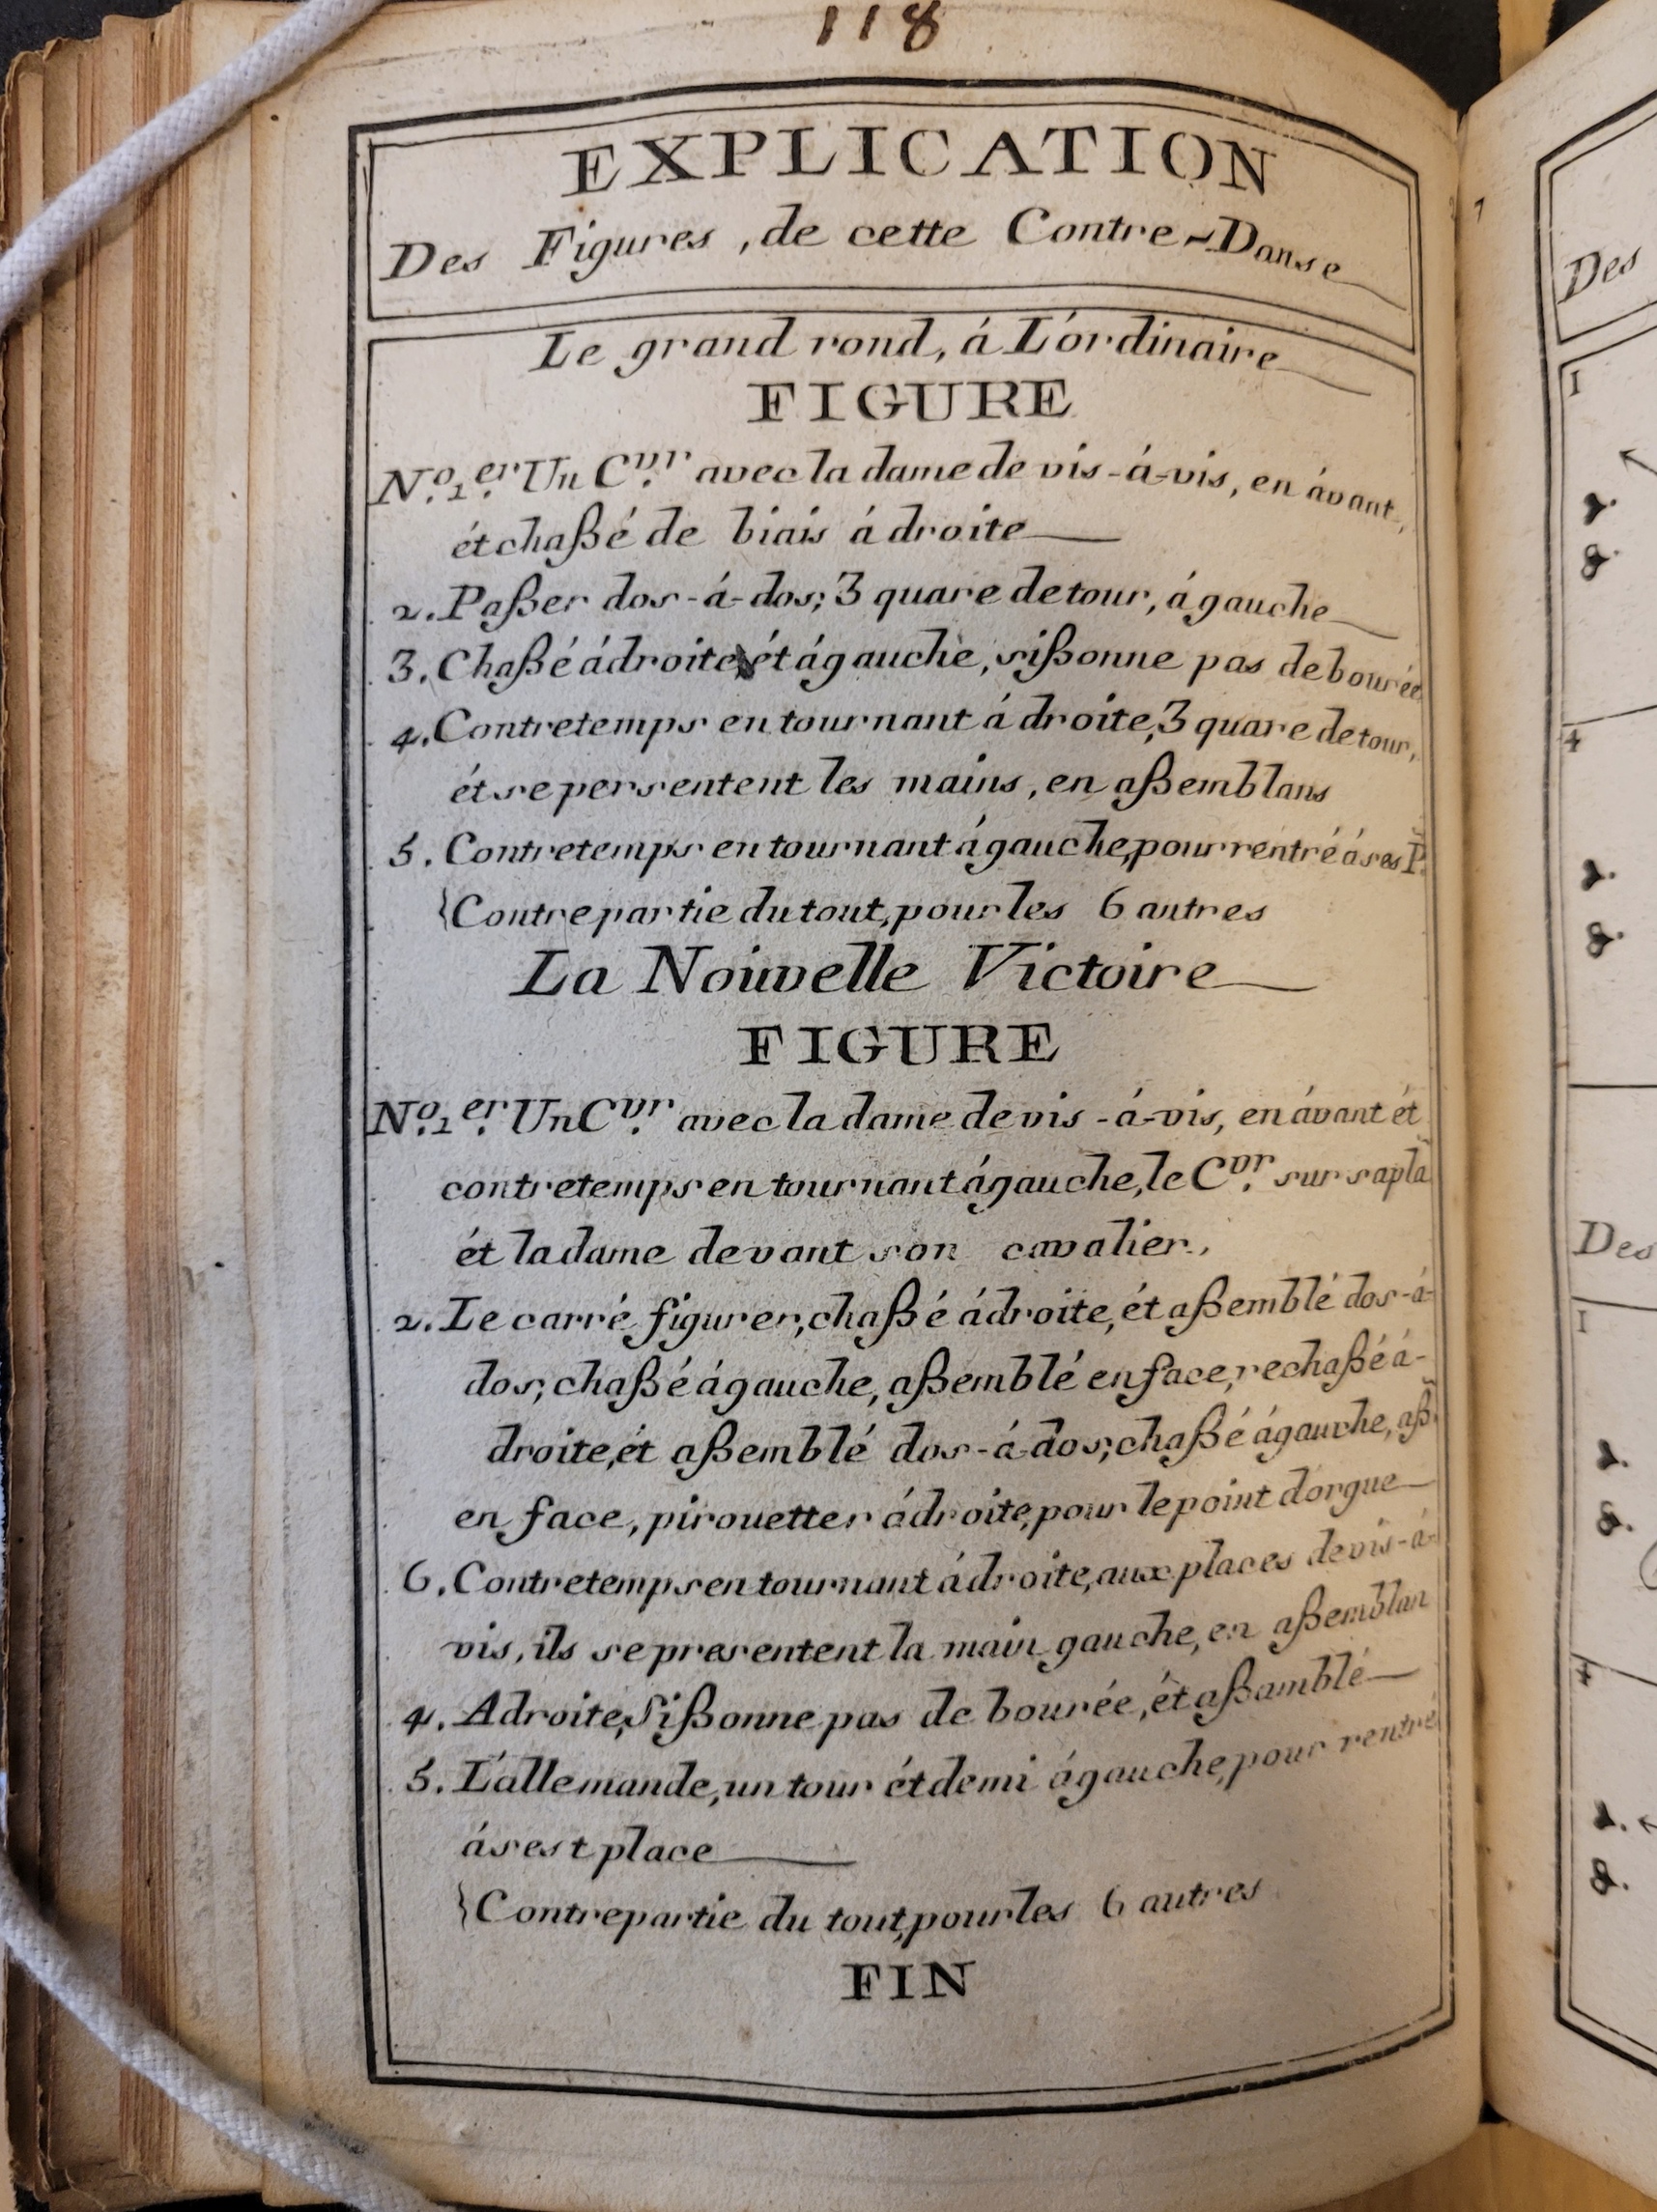 118
EXPLICATION
Des Figures, de cette Contre-Danse
Le grand rond, á L'ordinaire
FIGURE
N.º 1.er Un C.vr avec la dame de vis-á-vis, en ávant,
ét chaßé de biais á droite
2. Paßer dos-á-dos; 3 quare de tour, á gauche
3. Chaßé á droite ét á gauche, sißonne pas de bourée
4. Contretemps en tournant á droite, 3 quare de tour,
ét se persentent les mains, en aßemblans
5. Contretemps en tournant á gauche, pour rentré á ses P.
{Contrepartie du tout, pour les 6 autres
La Nouvelle Victoire
FIGURE
N.º 1.er Un C.vr avec la dame de vis-á-vis, en ávant ét
contretemps en tournant á gauche, le C.vr sur sa pla
ét la dame devant son cavalier,
2. Le carré figurer, chaßé á droite, ét aßemblé dos-á-
dos; chaßé á gauche, aßemblé en face, rechaßé á-
droite, ét aßemblé dos-á-dos; chaßé á gauche, aß.
en face, pirouetter á droite, pour le point d'orgue
6. Contretemps en tournant á droite, aux places de vis-á-
vis, ils se presentent la main gauche, en aßemblan
4. A droite, Sißonne pas de bourée, ét aßamblé
5. L'allemande, un tour ét demi á gauche, pour rentré
á sest place
{Contrepartie du tout, pour les 6 autres
FIN
Des
1
4
Des
1
4